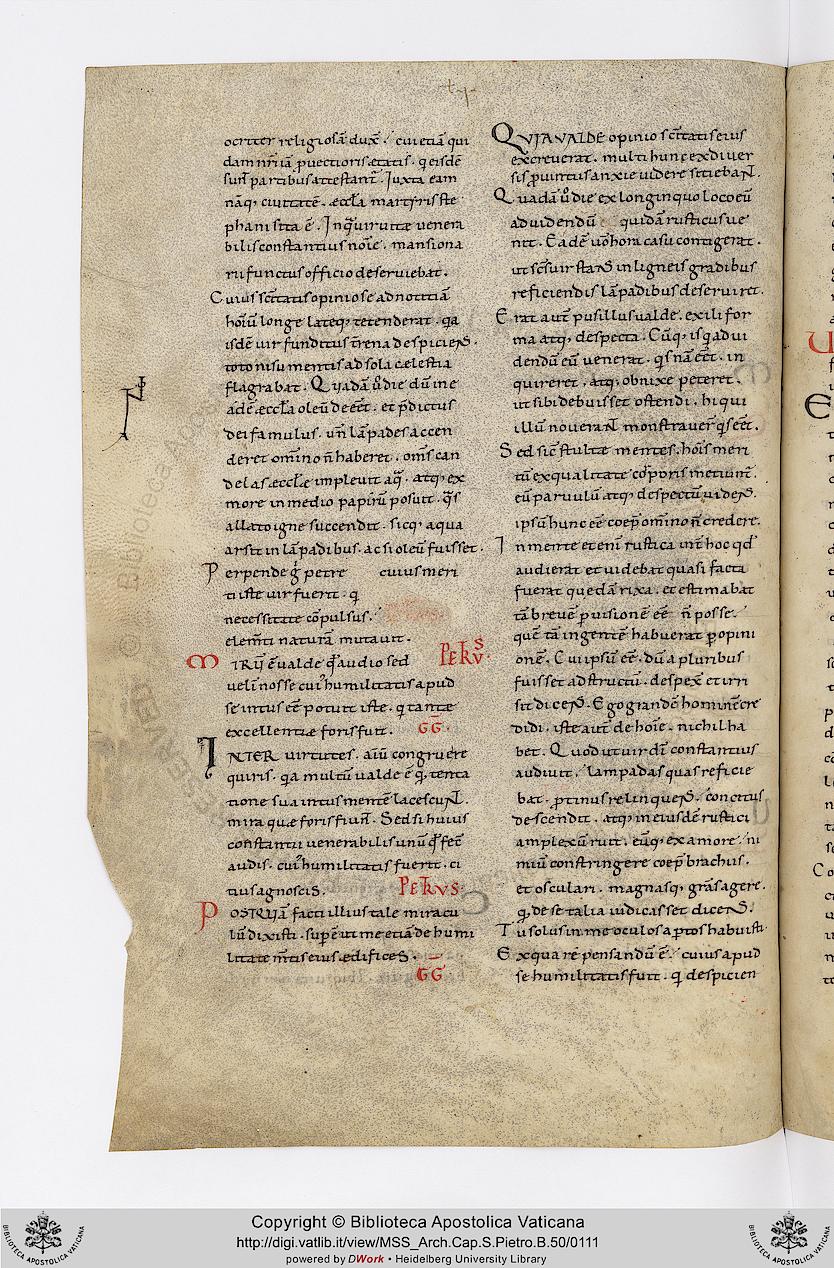 ocriter religiosā duxē. cui etiam qui
dam nr̄i iā ꝓuectioris ętatis. qi eisdē
sunt̄ partibus attestant̄. Iuxta eam
nāq; ciuitatē. æccl̄a martyris ste
phani sita ē. In qua uir uitæ uenera
bilis constantius noīe. mansiona
rii functus officio deseruiebat.
Cuius sc̄itatis opinio se ad notitiā
hoīū longe lateq; tetenderat. qa
isdē uir funditus terrena despiciens.
toto nisu mentis ad sola cælestia
flagrabat. Quadā u͛o die dū in e
adē æccl̄a oleū deēēt. et p̄dictus
dei famulus. un̄ lāpades accen
deret om̄ino n̄ haberet. om̄s can
delas æccl̄æ impleuit aq̄. atq; ex
more in medio papirū posuit. q̄s
allato igne succendit. sicq; aqua
arsit in lāpadibus. ac si oleū fuisset.
Perpende g̊ petre cuius meri
ti iste uir fuerit. q
necessitate cōpulsus.
elem̄ti naturā mutauit.
MIRŪ ē ualde qd̄ audio sed PETRVS.
uelī nosse cui͛ humilitatis apud
se intus eē potuit iste. qi tantæ
excellentiæ foris fuit. GḠ.
INTER uirtutes. aīū congruere
quiris. qa multū ualde ē q̄. tenta
tione sua intus mentē lacescunt̄.
mira quæ foris fiunt̄. Sed si huius
constantii uenerabilis unū qd̄ fec̄
audis. cui͛ humilitatis fuerit. ci
tius agnoscis. PETRVS
POSTQUĀ facti illius tale miracu
lū dixisti. sup̄ē ut me etiā de humi
litate m̄tis eius ædifices. GG
QUIA UALDE opinio sc̄itatis eius
excreuerat. multi hunc ex diuer
sis ꝓuintiis anxie uidere sitiebant̄.
Quadā u͛o die ex longinquo loco eū
ad uidendū quidā rusticus ue
nit. Eadē u͛o hora casu contigerat.
ut sc̄s uir stans in ligneis gradibus
reficiendis lāpadibus deseruiret.
Erat aut̄ pusillus ualde. exili for
ma atq; despecta. Cūq; is q̄ ad ui
dendū eū uenerat. qis nā eēt. in
quireret. atq; obnixe peteret.
ut sibi debuisset ostendi. hi qui
illū nouerant̄ monstrauer̄ qis eēt.
Sed sic̄ stultæ mentes. hoīs meri
tū ex qualitate corporis metiunt̄.
eū paruulū atq; despectū uidens.
ipsū hunc eē coep̄ om̄ino n̄ credere.
In mente etenī rustica int̄ hoc qd̄
audierat et uidebat quasi facta
fuerat quedā rixa. et estimabat
tā breuē ꝑ uisionē eē n̄ posse.
quē tā ingentē habuerat ꝑ opini
onē. Cui ipsū eē. dū a pluribus
fuisset adstructū. despex̄ et irri
sit dicens. Ego grandē hominē cre
didi. iste aut̄ de hoīe. nichil ha
bet. Quod ut uir dī constantius
audiuit. lampadas quas reficie
bat. ꝓtinus relinquens. concitus
descendit. atq; in eiusdē rustici
amplexū ruit. eūq; ex amore ni
miū constringere coep̄ brachiis.
et osculari. magnasq; grās agere.
q̄. de se talia iudicasset dicens.
Tu solus in me oculos aptos habuisti.
Ex qua re pensandū ē. cuius apud
se humilitatis fuit. qi despicien
Copyright © Biblioteca Apostolica Vaticana
http://digi.vatlib.it/view/MSS_Arch.Cap.S.Pietro.B.50/0111
powered by DWork • Heidelberg University Library